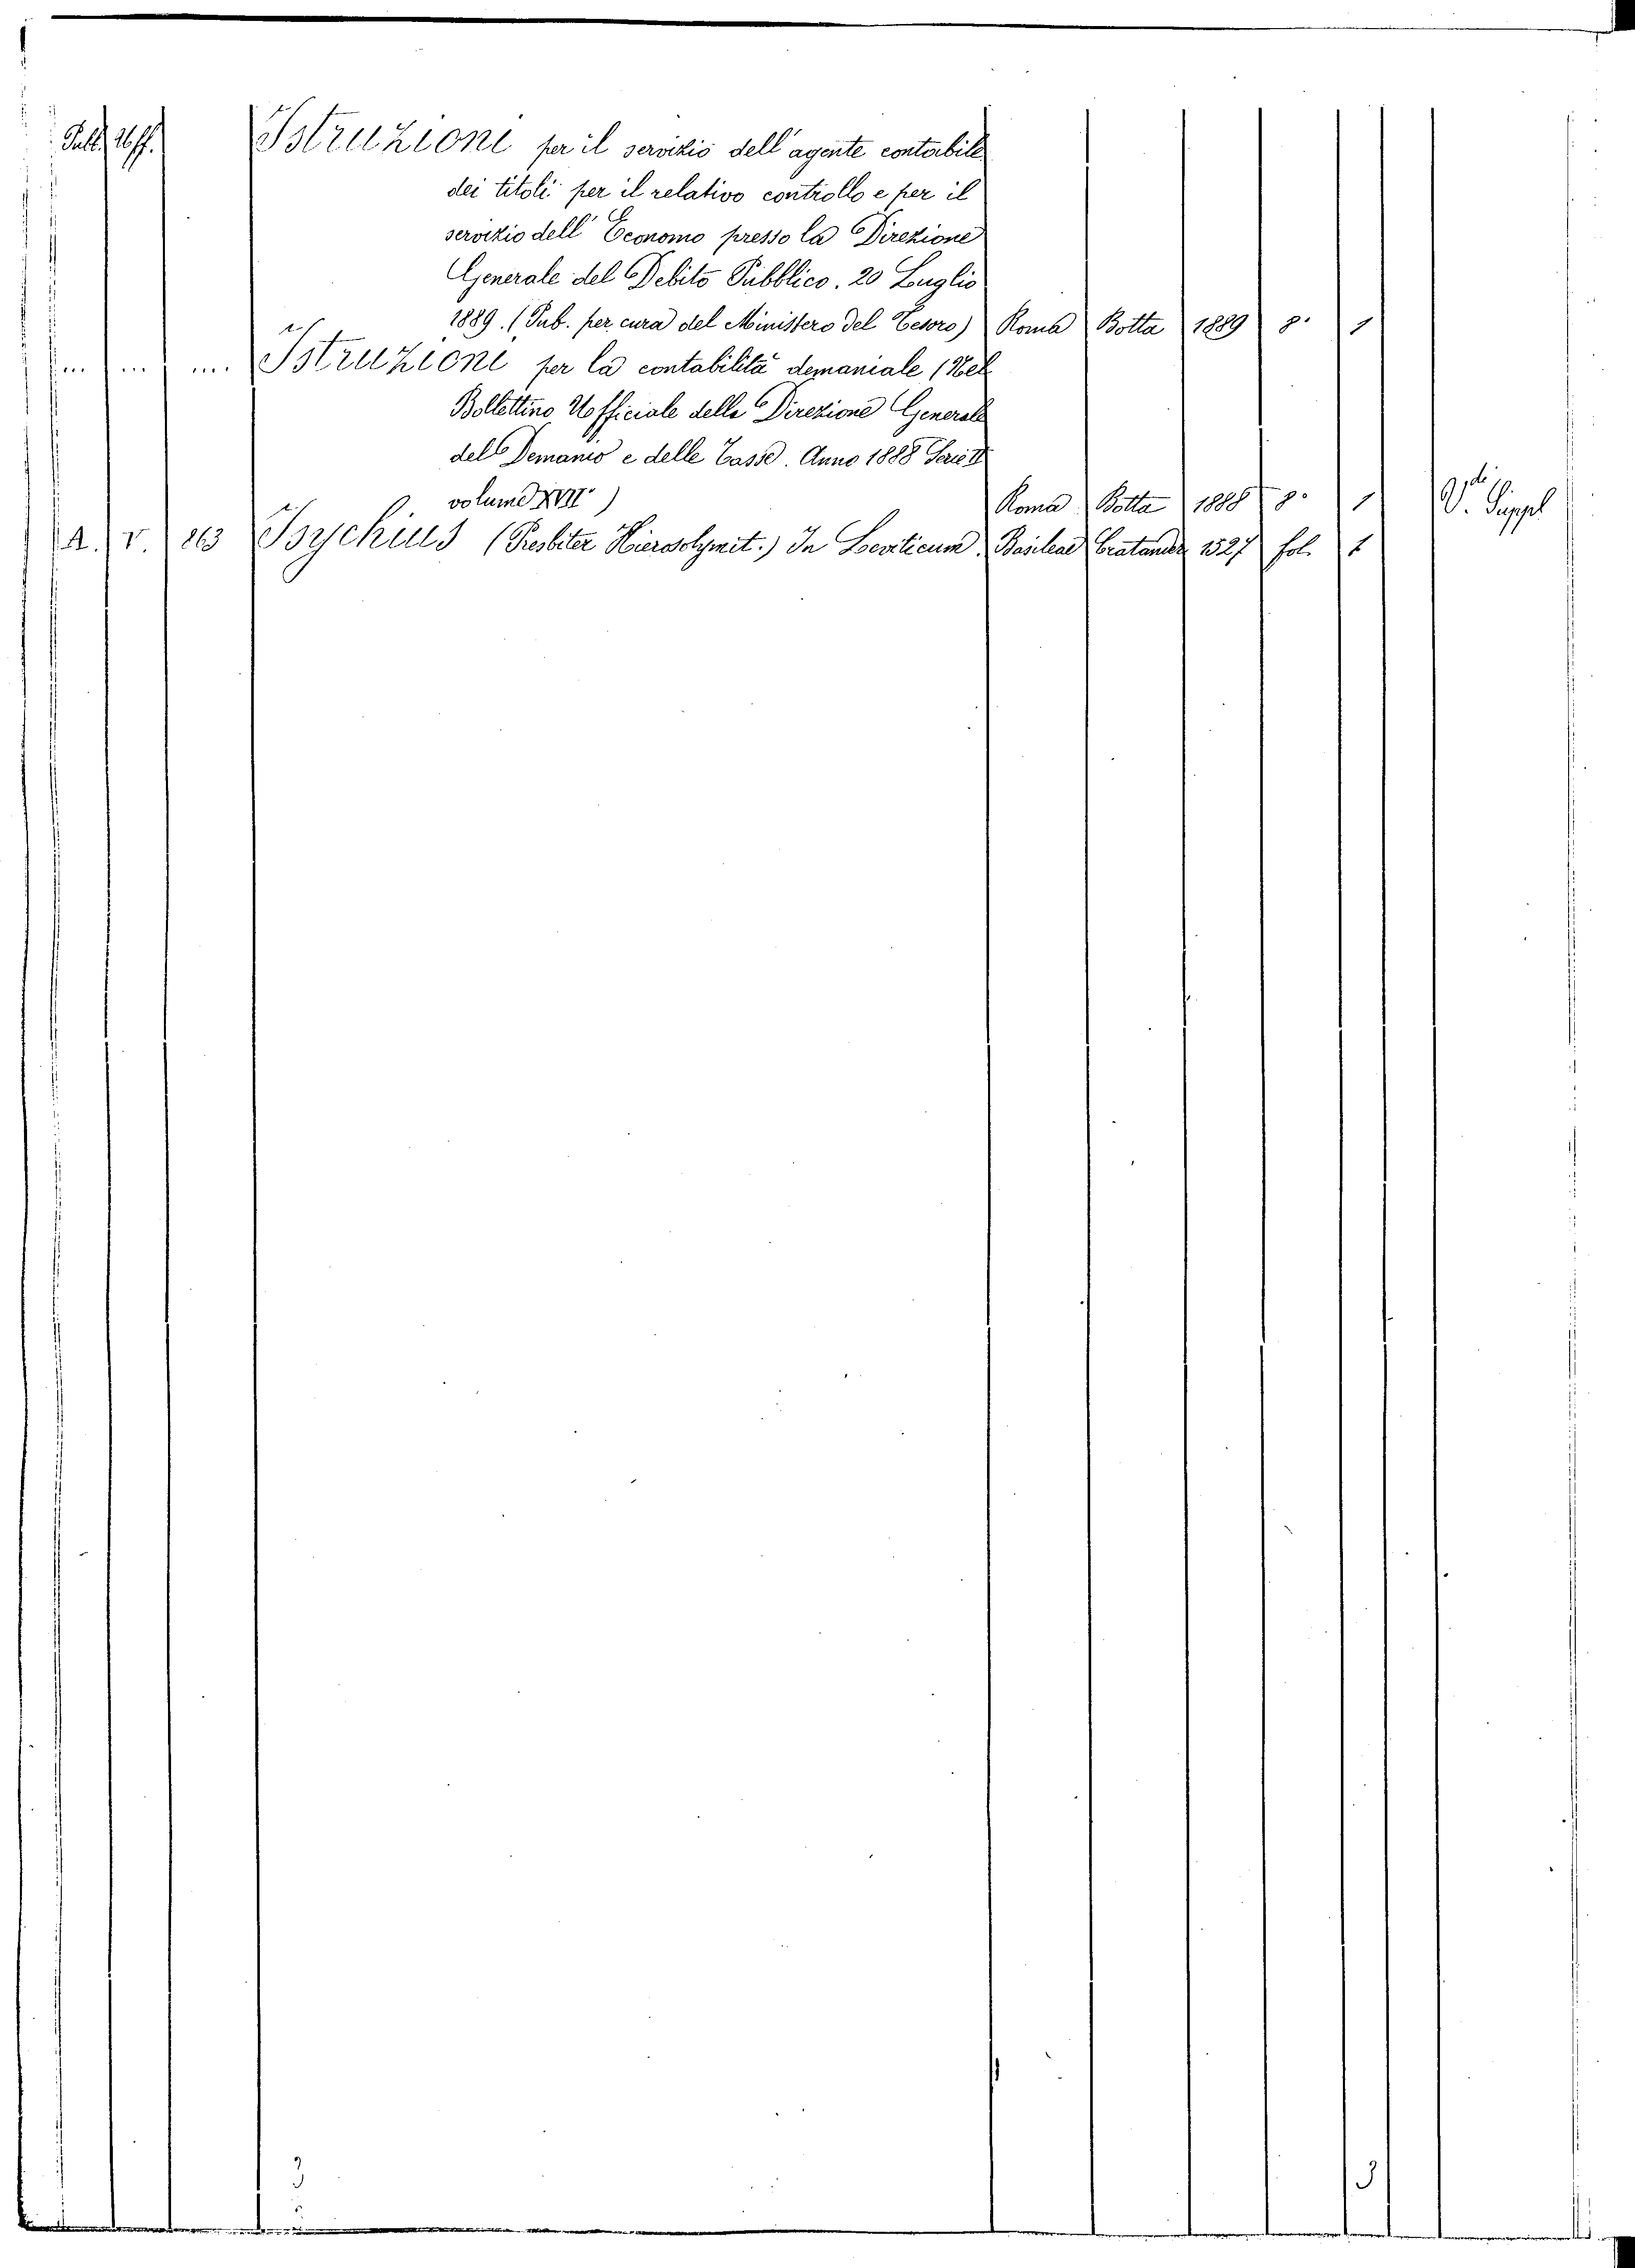 Pubb. Uff. Istruzioni per il servizio dell' agente contabile
dei titoli per il relativo controllo e per il
servizio dell' Economo presso la Direzione
Generale del Debito Pubblico. 20 Luglio
1889. (Pub. per cura del Ministero del Tesoro) Roma Botta 1889 8.° 1
... ... ... Istruzioni per la contabilità demaniale (Nel
Bollettino Ufficiale della Direzione Generale
del Demanio e delle Tasse. Anno 1888 Serie II
volume XVII) Roma Botta 1888 8.° 1 V. Suppl
A. V. 263 Isychius (Presbiter Hierosolymit.) In Leviticum Basileae Cratander 1527 fol. 1
3 3